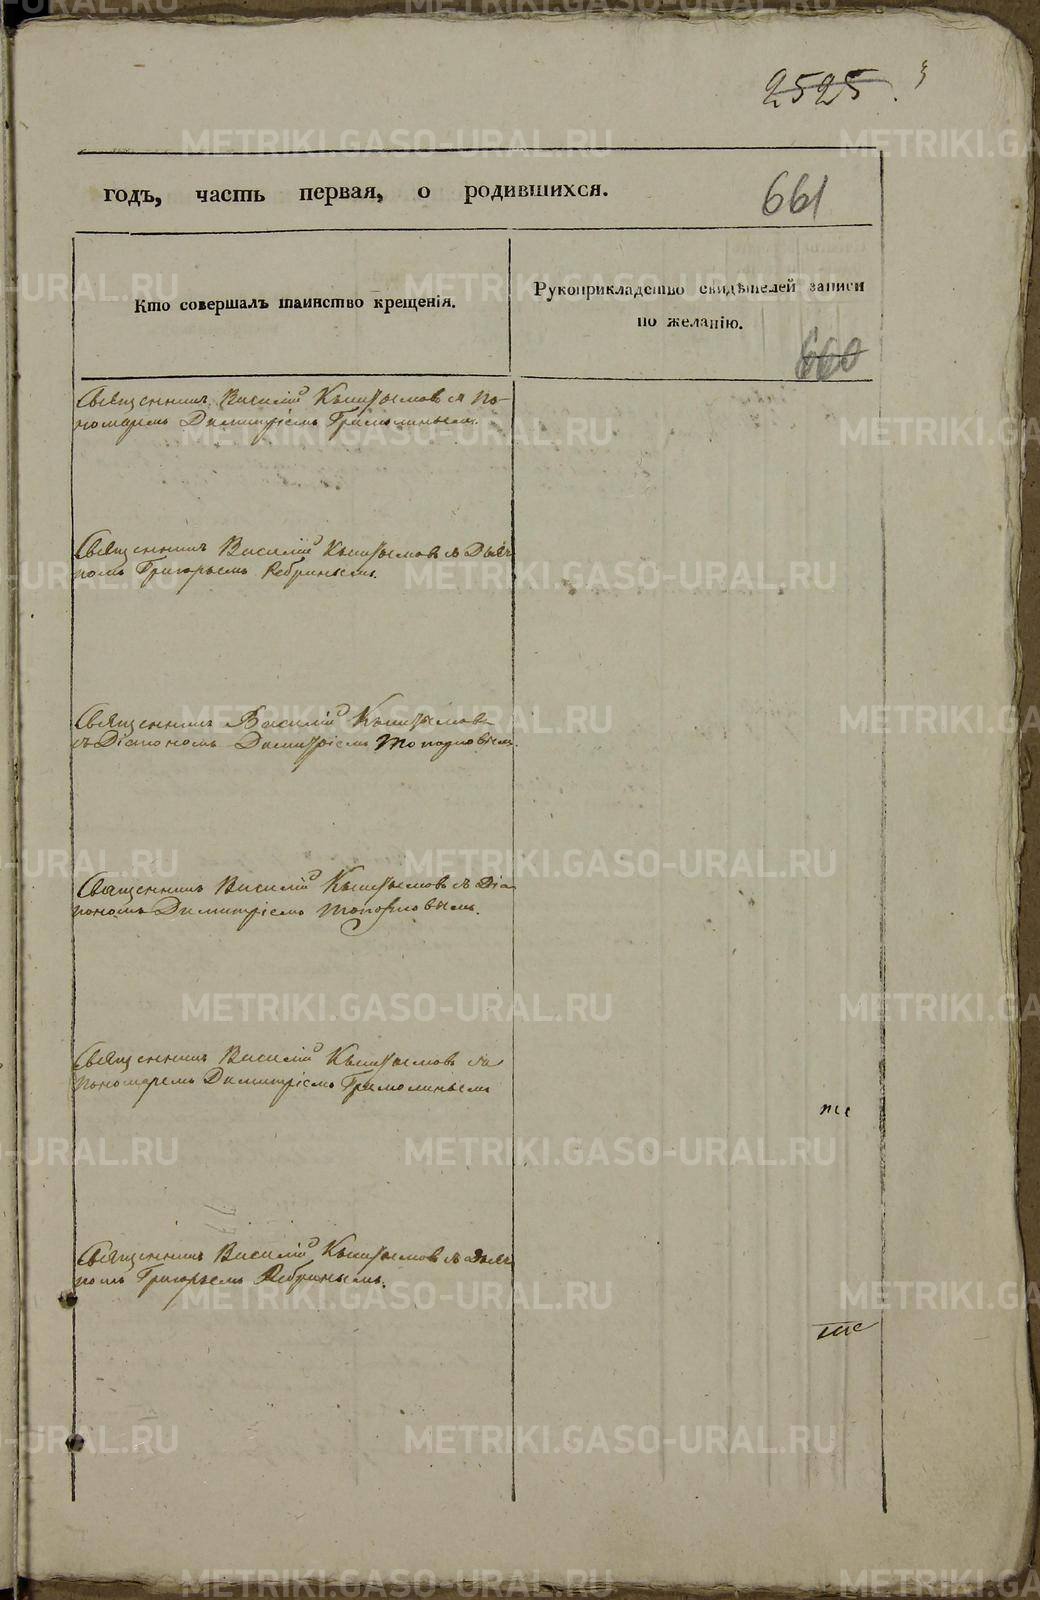 2525. 3
годъ, часть первая, о родившихся.
661
Кто совершалъ таинство крещенія.
Рукоприкладство свидѣтелей записи
по желанію.
660
Священникъ Василій съ По-
номаремъ Димитріемъ
Священникъ Василій съ Дьяч
комъ Григорьемъ Ребринымъ.
Священникъ Василій
съ Діакономъ Димитріемъ Топорковымъ.
Священникъ Василій съ Діа
кономъ Димитріемъ Топорковымъ.
Священникъ Василій съ
Пономаремъ Димитріемъ
Священникъ Василій съ Дьяч
комъ Григорьемъ Ребринымъ.
METRIKI.GASO-URAL.RU